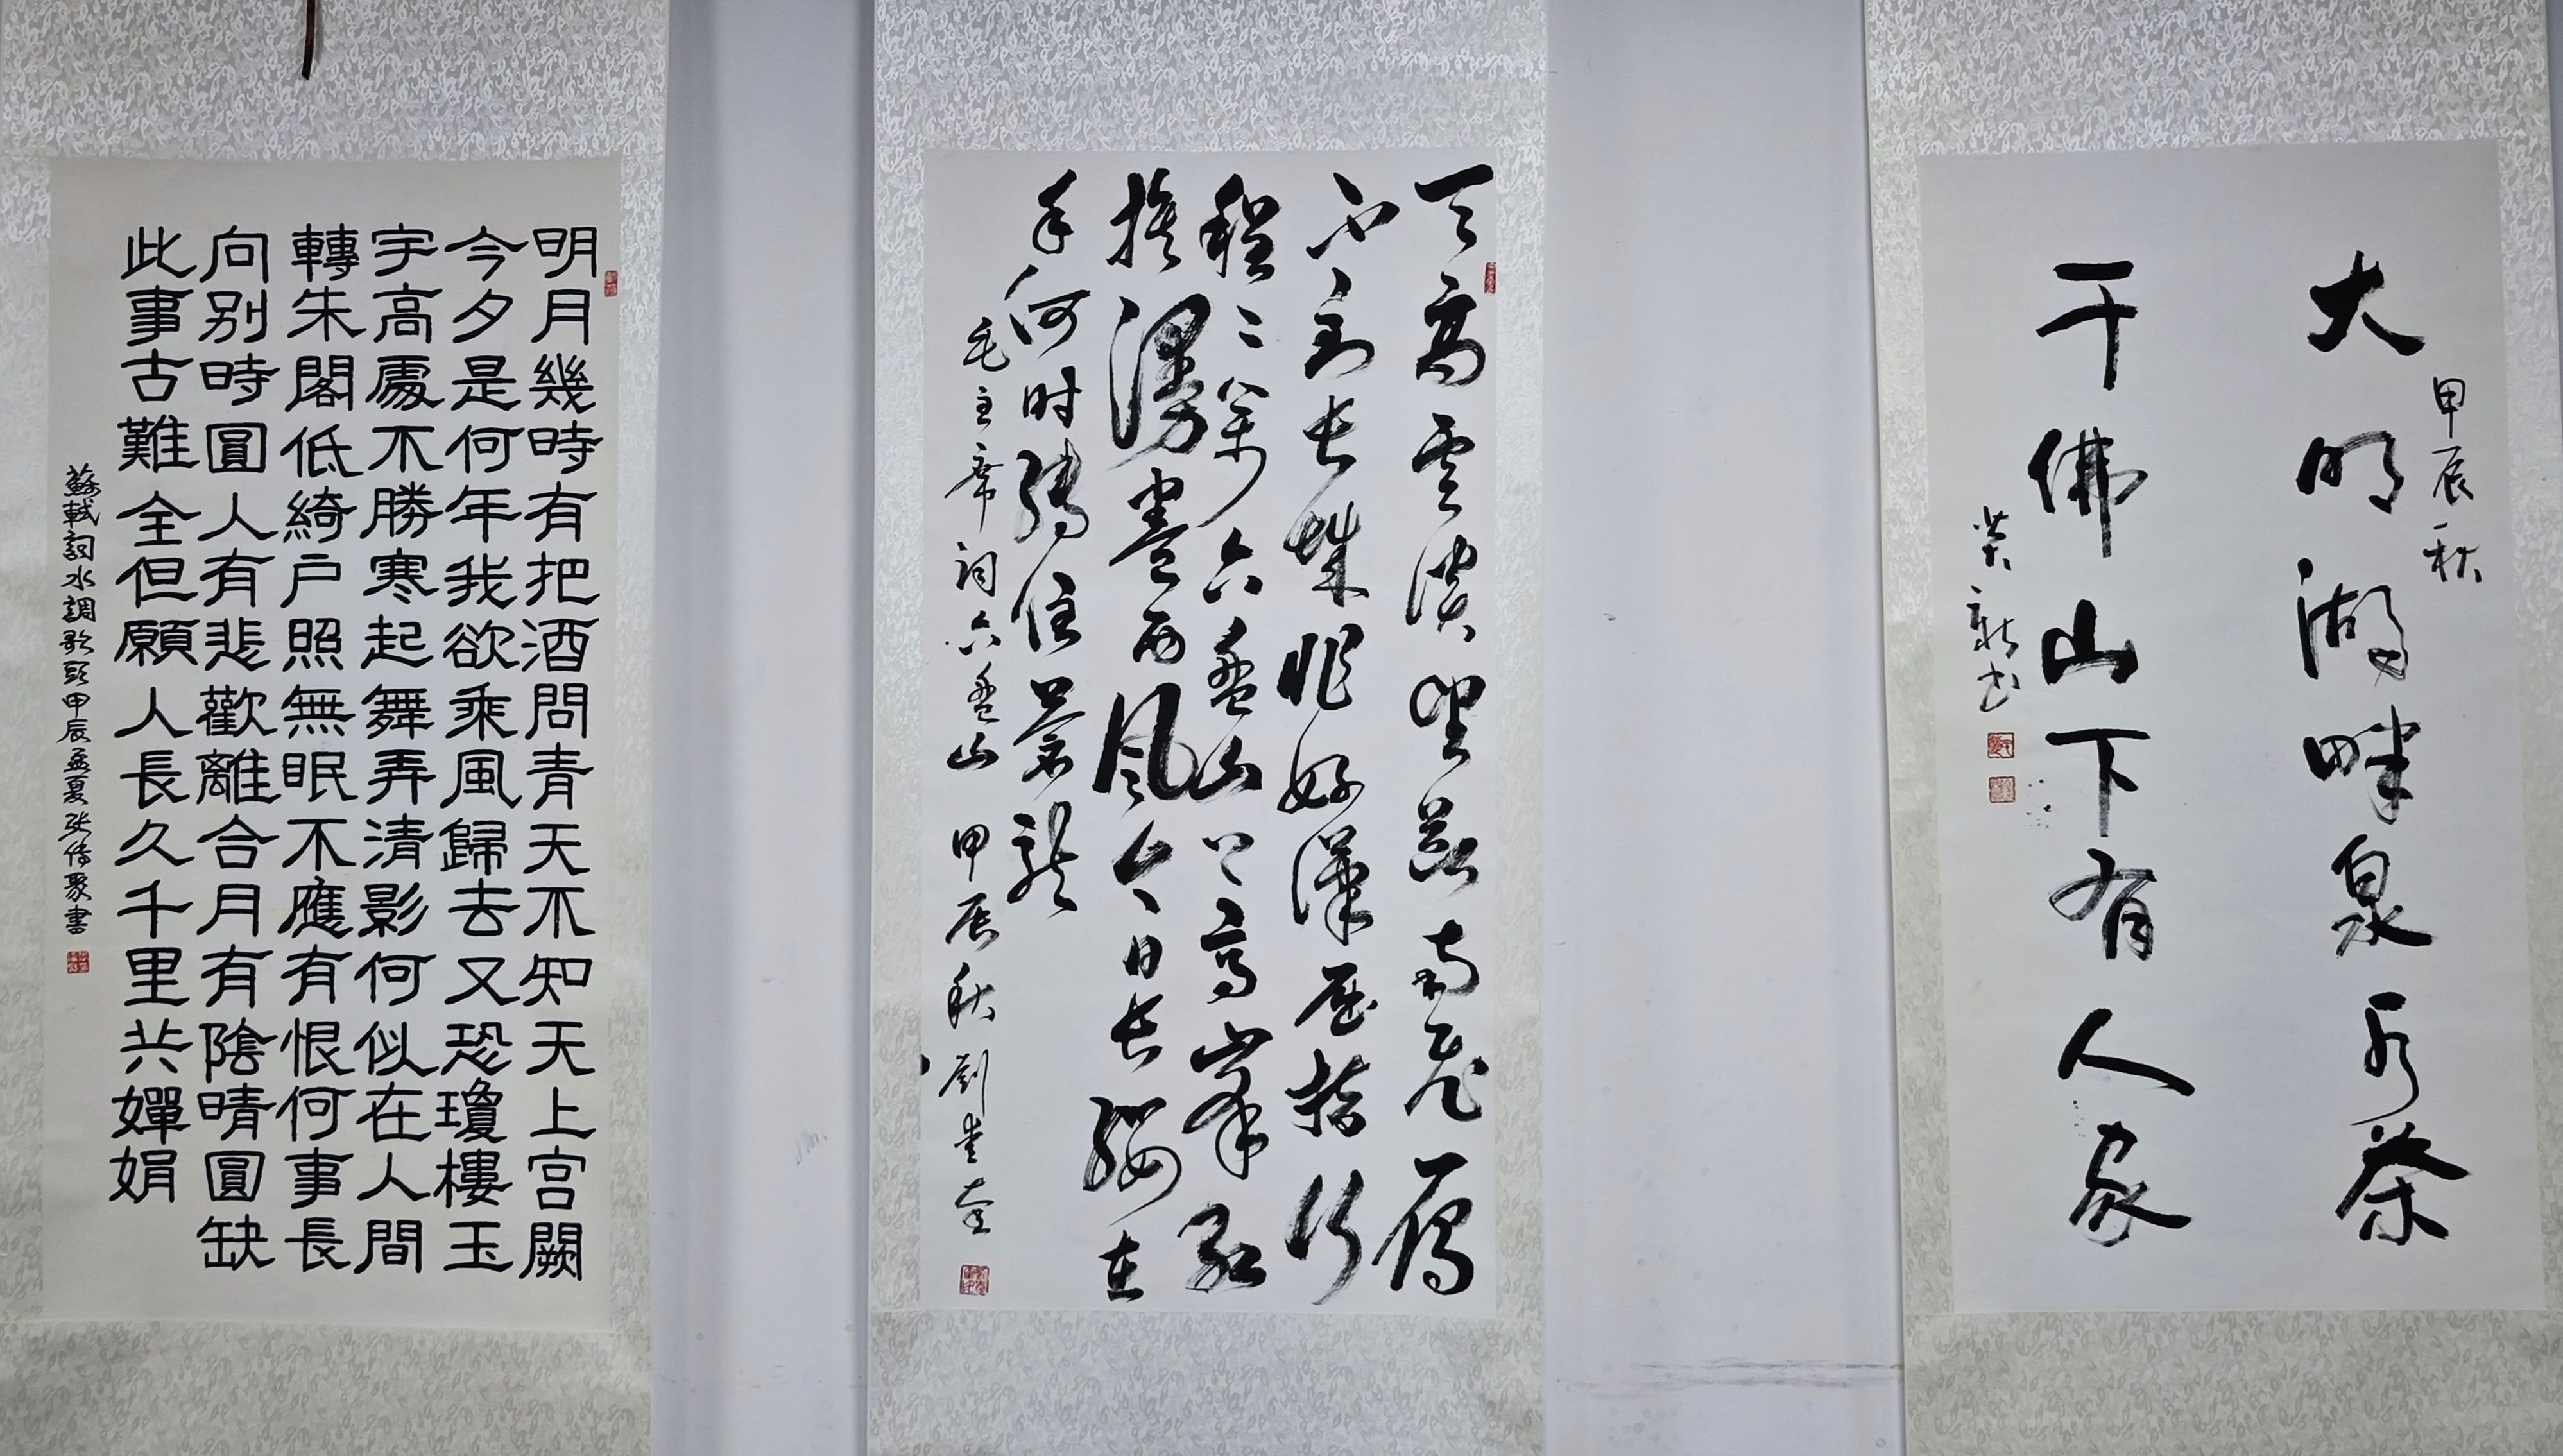 甲辰秋
大明湖畔泉水茶
千佛山下有人家
天高雲淡望断南飛雁
不到长城非好漢屈指行
程二萬六盘山上高峯红
旗漫卷西风今日长缨在
手何时缚住苍龙
毛主席词六盘山 甲辰秋 劉
明月幾時有把酒問青天不知天上宫闕
今夕是何年我欲乘風歸去又恐瓊樓玉
宇高處不勝寒起舞弄清影何似在人間
轉朱閣低綺户照無眠不應有恨何事長
向别時圓人有悲歡離合月有陰晴圓缺
此事古難全但願人長久千里共嬋娟
蘇軾詞水調歌頭甲辰孟夏张传聚書